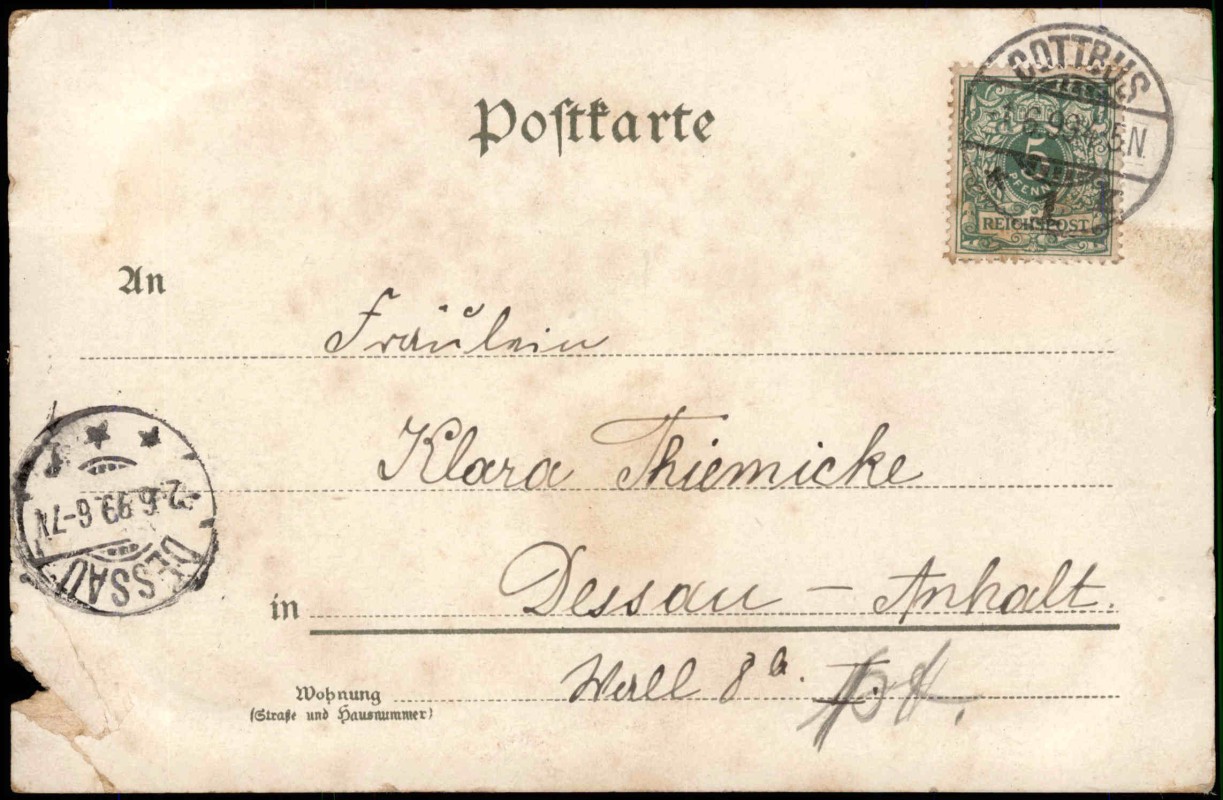 Postkarte
COTTBUS
.6.99.4-5N.
1
5
PFENNIG
REICHSPOST
An
Fräulein
Klara Thiemicke
in Dessau – Anhalt.
DESSAU
2.6.99.6-7N
Wohnung Wall 8a.
(Straße und Hausnummer)